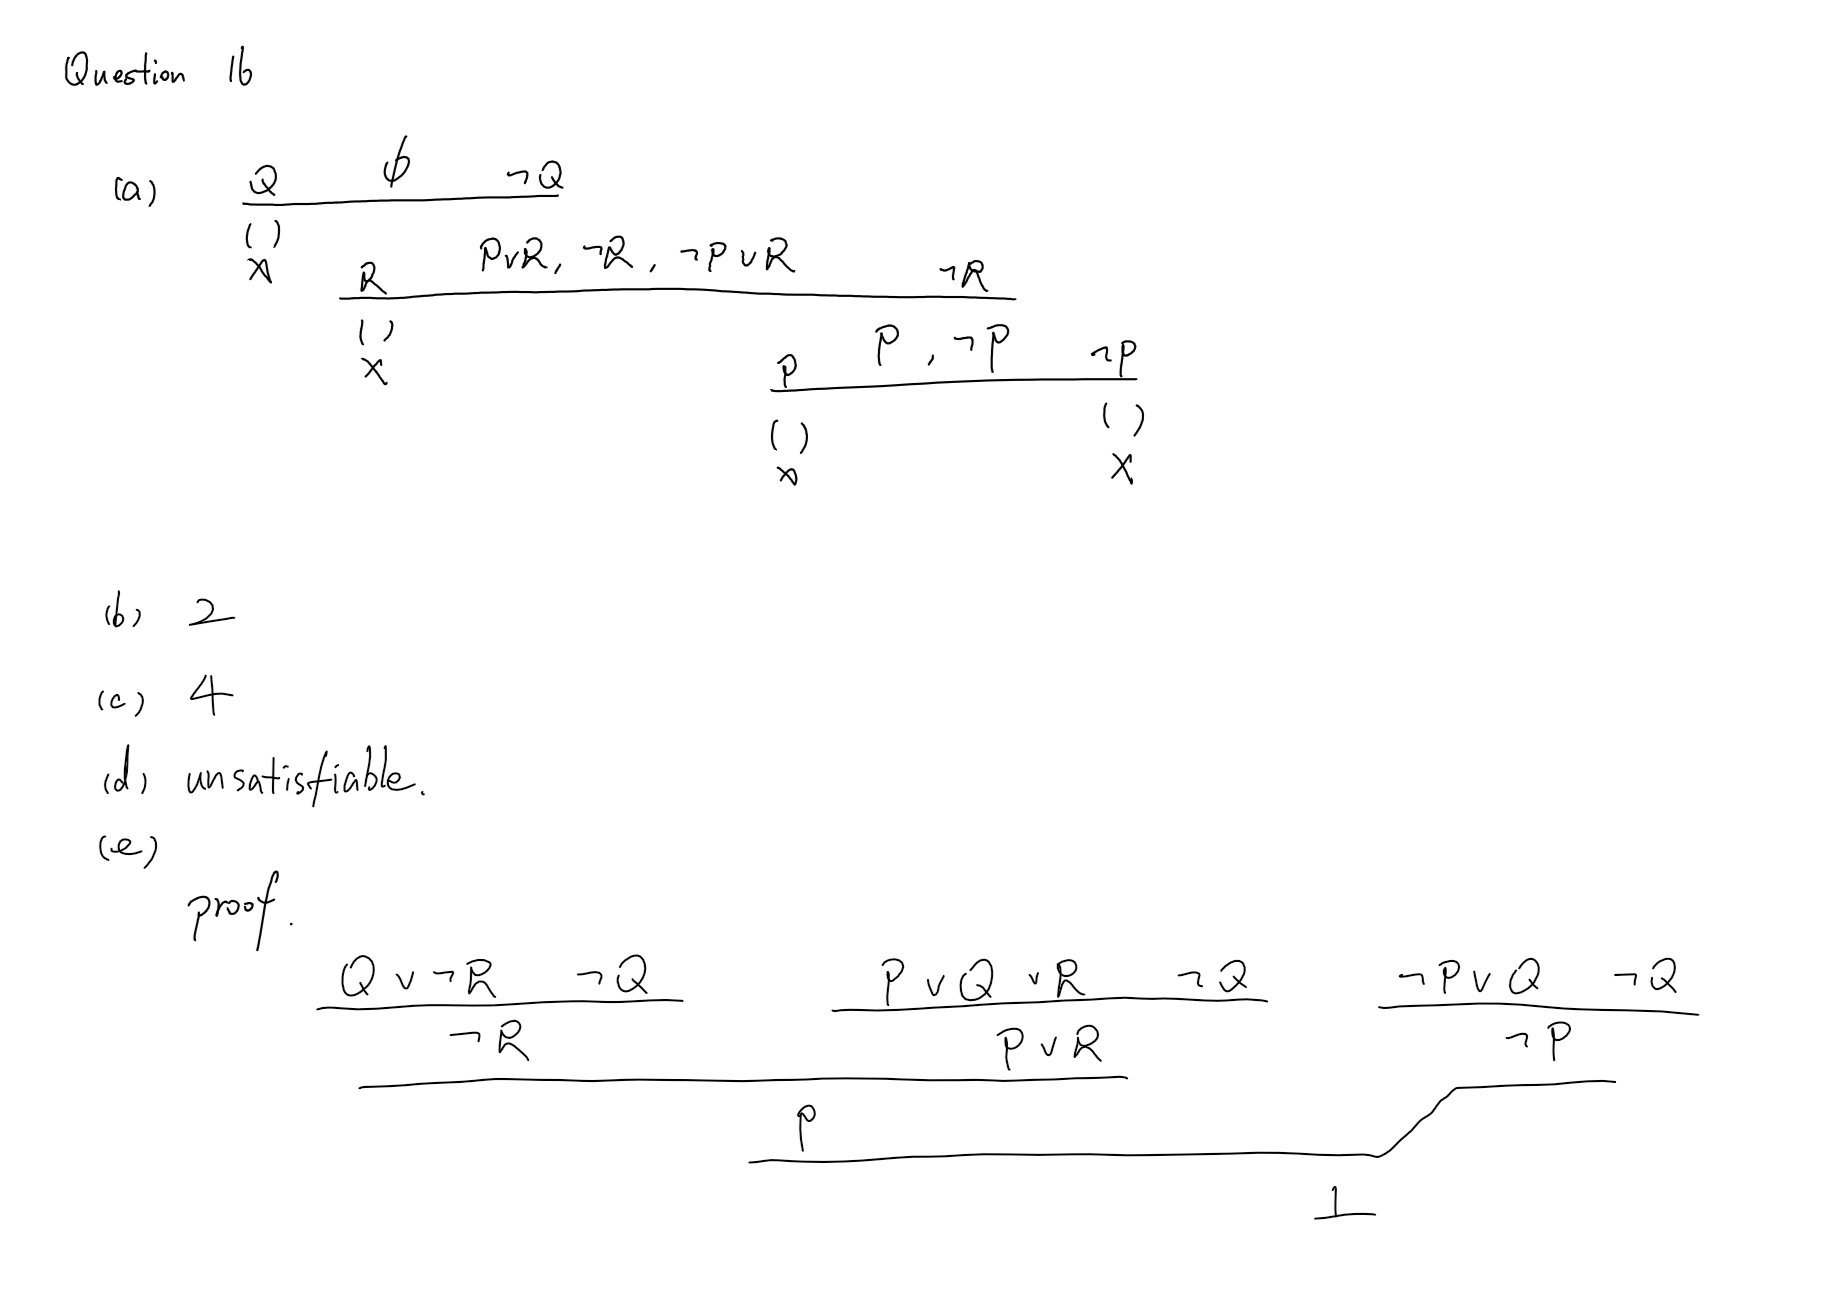 Question 16
(a) Q ϕ ¬Q
( )
x
R P∨R, ¬R, ¬P∨R ¬R
( )
x
P P, ¬P ¬P
( ) ( )
x x
(b) 2
(c) 4
(d) unsatisfiable.
(e)
proof.
Q ∨ ¬R ¬Q P ∨ Q ∨ R ¬Q ¬P ∨ Q ¬Q
¬R P ∨ R ¬P
P
⊥